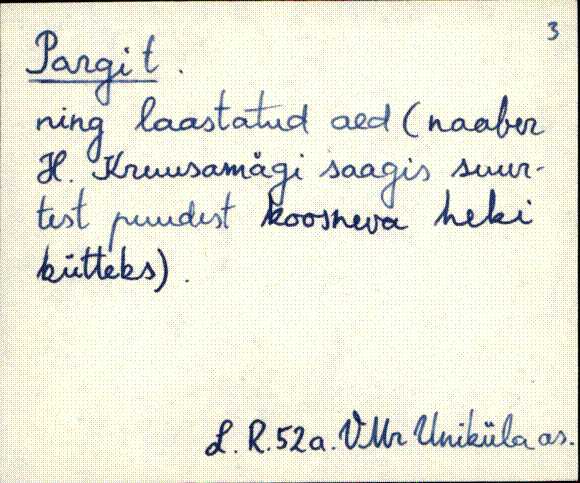 3
Pargi t.
ning laastatud aed (naaber
H. Kruusamägi saagis suur-
test puudest koosneva heki
kütteks).
L. R. 52a. VMr Uniküla as.